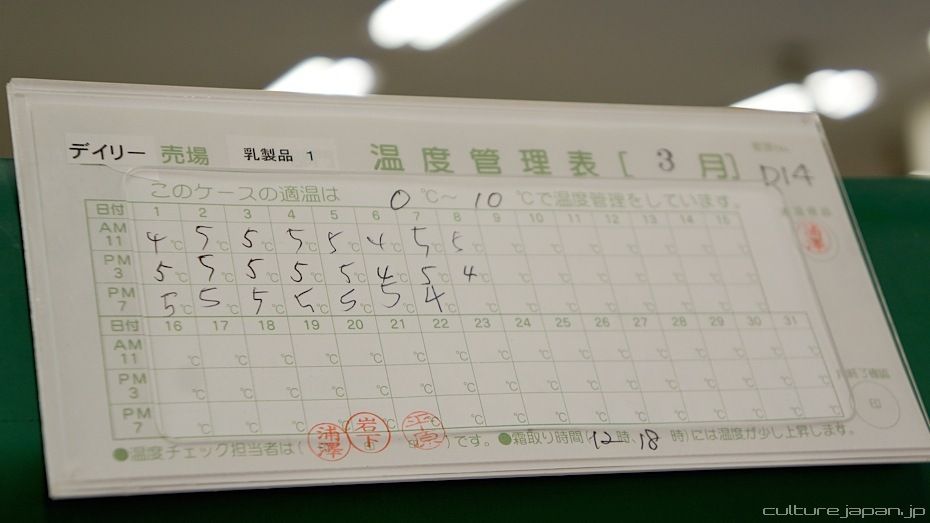 デイリー 売場 乳製品 1 温度管理表[ 3 月]
D14
このケースの適温は 0 ℃〜 10 ℃で温度管理をしています。
日付 1 2 3 4 5 6 7 8 9 10 11 12 13 14 15
AM 11 4℃ 5℃ 5℃ 5℃ 5℃ 4℃ 5℃ 5℃ ℃ ℃ ℃ ℃ ℃ ℃ ℃
PM 3 5℃ 5℃ 5℃ 5℃ 5℃ 4℃ 5℃ 4℃ ℃ ℃ ℃ ℃ ℃ ℃ ℃
PM 7 5℃ 5℃ 5℃ 5℃ 5℃ 5℃ 4℃ ℃ ℃ ℃ ℃ ℃ ℃ ℃ ℃
日付 16 17 18 19 20 21 22 23 24 25 26 27 28 29 30 31
AM 11 ℃ ℃ ℃ ℃ ℃ ℃ ℃ ℃ ℃ ℃ ℃ ℃ ℃ ℃ ℃ ℃
PM 3 ℃ ℃ ℃ ℃ ℃ ℃ ℃ ℃ ℃ ℃ ℃ ℃ ℃ ℃ ℃ ℃
PM 7 ℃ ℃ ℃ ℃ ℃ ℃ ℃ ℃ ℃ ℃ ℃ ℃ ℃ ℃ ℃ ℃
印
●温度チェック担当者は( 浦澤 岩下 平京 )です。 ●霜取り時間(12時、18時)には温度が少し上昇します。
culturejapan.jp